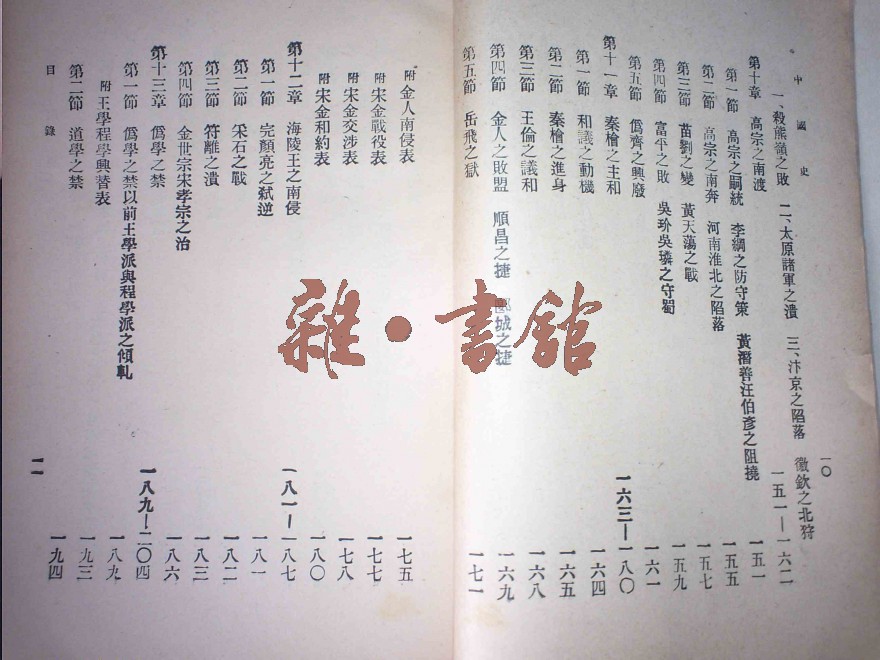 中國史
一〇
一、殺熊嶺之敗 二、太原諸軍之潰 三、汴京之陷落 徽欽之北狩
第十章 高宗之南渡 一五一—一六二
第一節 高宗之嗣統 李綱之防守策 黃潛善汪伯彥之阻撓 一五一
第二節 高宗之南奔 河南淮北之陷落 一五五
第三節 苗劉之變 黃天蕩之戰 一五七
第四節 富平之敗 吳玠吳璘之守蜀 一五九
第五節 僞齊之興廢 一六一
第十一章 秦檜之主和 一六三—一八〇
第一節 和議之動機 一六四
第二節 秦檜之進身 一六五
第三節 王倫之議和 一六八
第四節 金人之敗盟 順昌之捷 郾城之捷 一六九
第五節 岳飛之獄 一七一
附 金人南侵表 一七五
附 宋金戰役表 一七七
附 宋金交涉表 一七八
附 宋金和約表 一八〇
第十二章 海陵王之南侵 一八一—一八七
第一節 完顏亮之弒逆 一八一
第二節 采石之戰 一八二
第三節 符離之潰 一八三
第四節 金世宗宋孝宗之治 一八六
第十三章 僞學之禁 一八九—二〇四
第一節 僞學之禁以前王學派與程學派之傾軋 一八九
附 王學程學興替表 一九三
第二節 道學之禁 一九四
目錄
一一
雜·書館